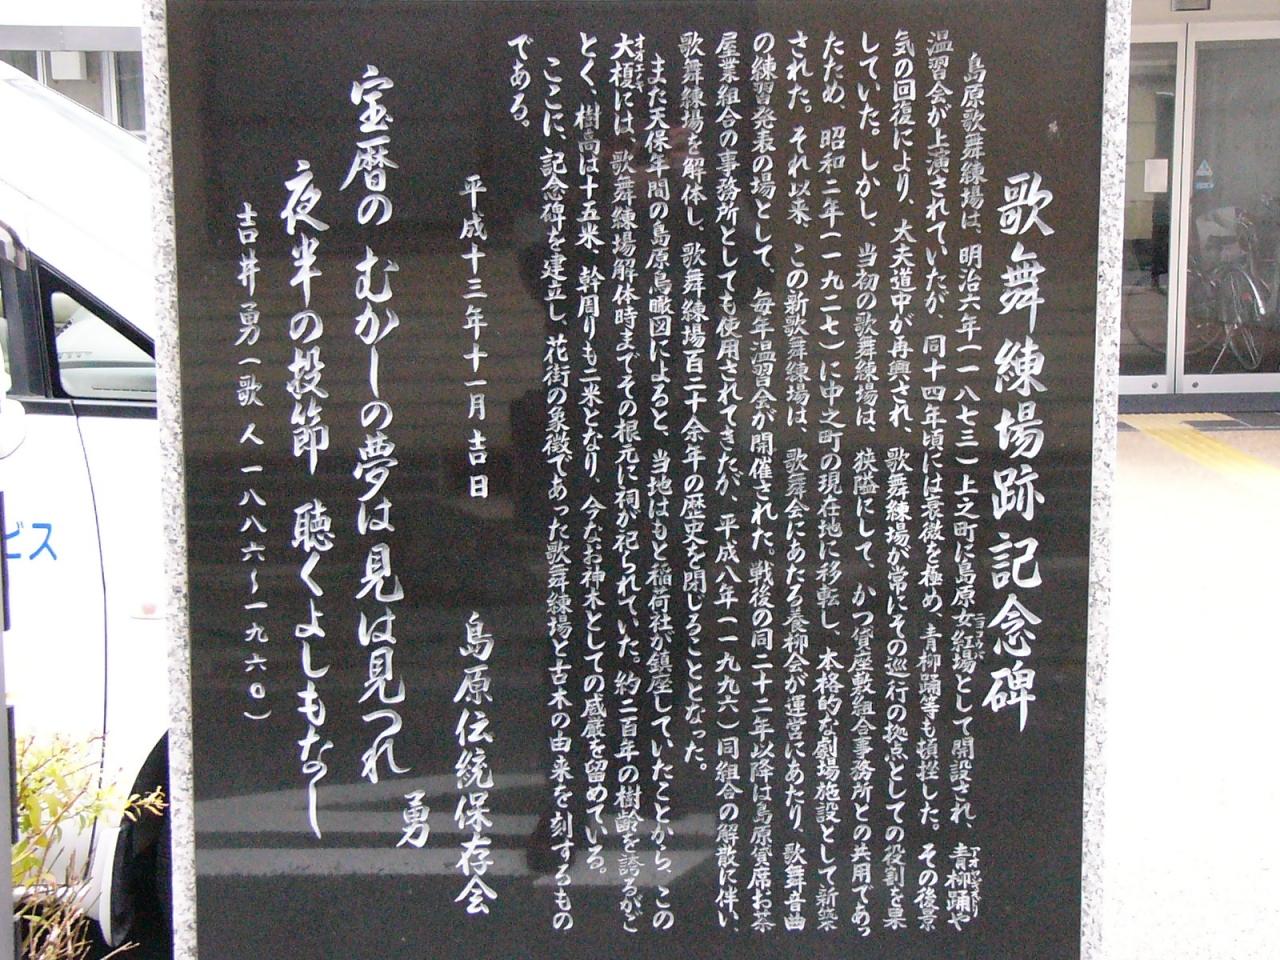 歌舞練場跡記念碑
島原歌舞練場は、明治六年(一八七三)上之町に島原女紅場として開設され、青柳踊や
温習会が上演されていたが、同十四年頃には衰微を極め、青柳踊等も頓挫した。その後景
気の回復により、太夫道中が再興され、歌舞練場が常にその巡行の拠点としての役割を果
していた。しかし、当初の歌舞練場は、狭隘にして、かつ貸座敷組合事務所との共用であっ
たため、昭和二年(一九二七)に中之町の現在地に移転し、本格的な劇場施設として新築
された。それ以来、この新歌舞練場は、歌舞会にあたる養柳会が運営にあたり、歌舞音曲
の練習発表の場として、毎年温習会が開催された。戦後の同二十二年以降は島原貸席お茶
屋業組合の事務所としても使用されてきたが、平成八年(一九九六)同組合の解散に伴い、
歌舞練場を解体し、歌舞練場百二十余年の歴史を閉じることとなった。
また天保年間の島原鳥瞰図によると、当地はもと稲荷社が鎮座していたことから、この
大榎には、歌舞練場解体時までその根元に祠が祀られていた。約二百年の樹齢を誇るがご
とく、樹高は十五米、幹周りも二米となり、今なお神木としての威厳を留めている。
ここに、記念碑を建立し、花街の象徴であった歌舞練場と古木の由来を刻するもの
である。
平成十三年十一月吉日
島原伝統保存会
宝暦の むかしの夢は見は見つれ
夜半の投節 聴くよしもなし
勇
吉井勇(歌人一八八六~一九六〇)
ビス